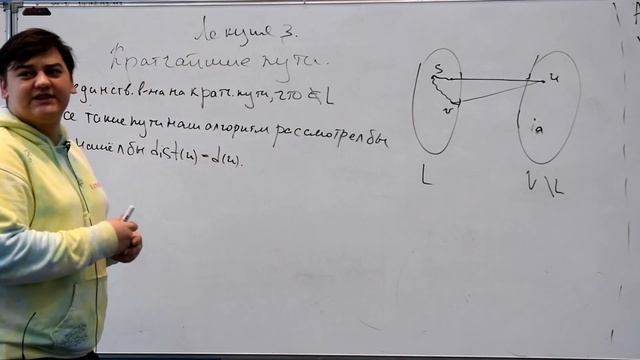 Лекция 3.
Кратчайшие пути.
единств. в-на на кратч. пути, что ∉ L
се такие пути наш алгоритм рассмотрел бы
нашёл бы dist(u) = d(u).
s
u
v
a
L
V \ L